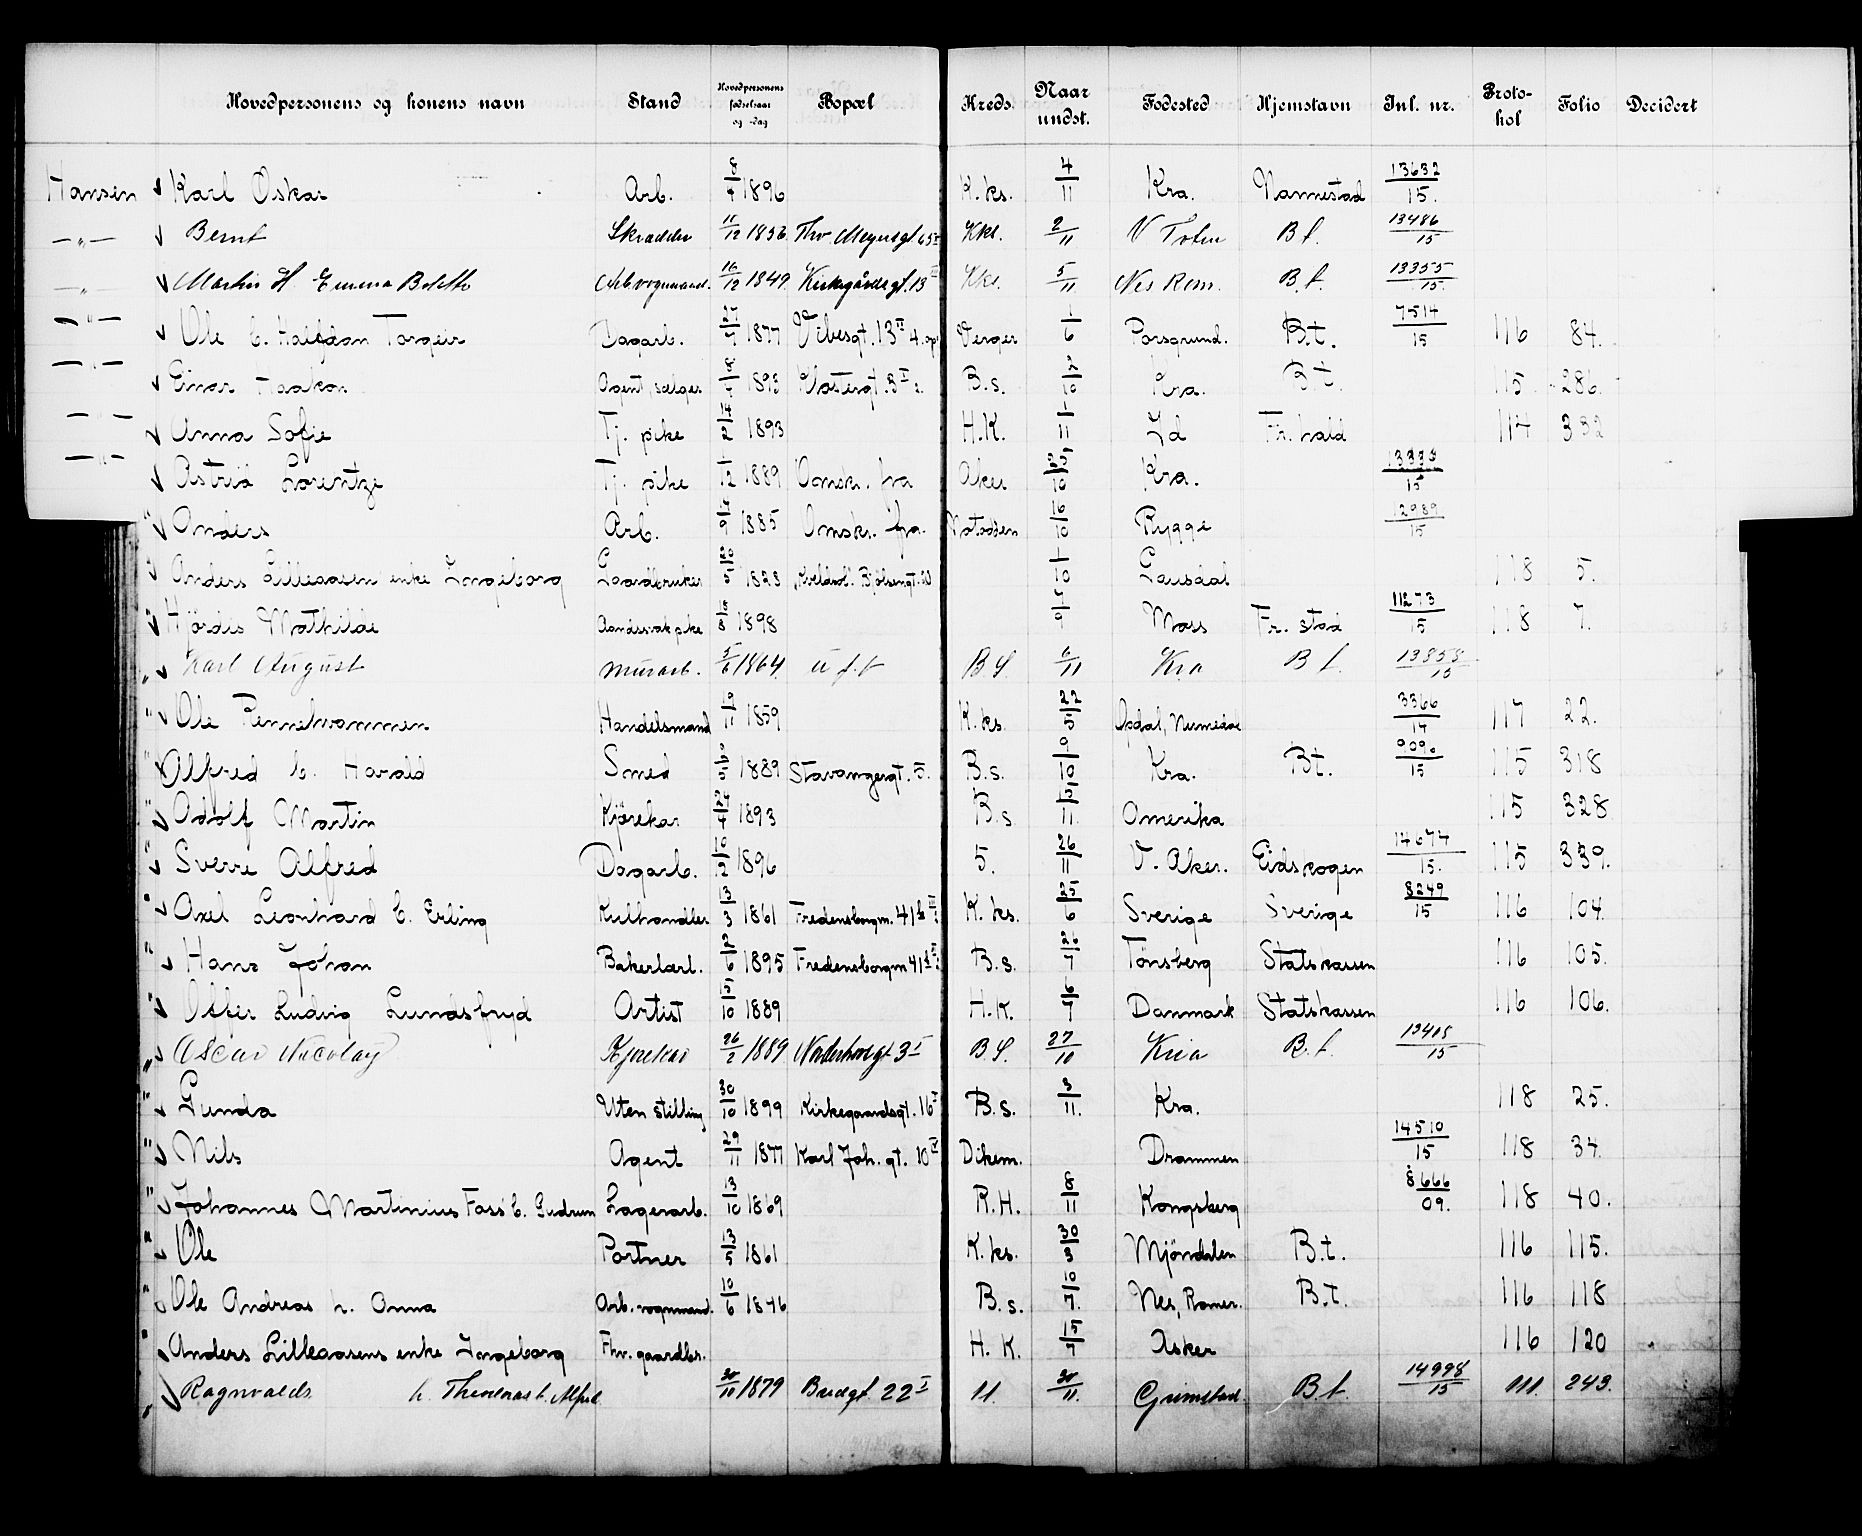 Hovedpersonens og konens navn Stand Hovedpersonens fødselsaar og -dag Bopæl Kreds. Naar undst. Fødested Hjemstavn Inl. nr. Proto-kol Folio Decidert
Hansen Karl Oskar Arb. 8/4 1896 K.ks. 4/11 Kra. Nannestad 13632/15.
—"— Bernt Skrædder 11/12 1856 Thv. Meyersgt. Kks. 2/11 V Toten B.t. 13486/15
—"— Martin H. Emma Arb vognmand. 16/12 1849 Kirkegårdsgt. 13 Kks. 5/11 Nes Rom. B.t. 13355/15.
—"— Ole b. Halfdan Torgeir Dagarb. 27/7 1877 Vibesgt. 13 II 4. op Verger 1/6 Porsgrund. B.t. 7514/15 116 84.
—"— Einar Haakon Agent, sælger 1893 Klostergt. B.s. Kra. B.t. 115 286.
—"— Anna Sofie Tj. pike 14/2 1893 H.K. 1/11 Id Fr. hald 114 332
—"— Astrid Lorentze Tj. pike 1/12 1889 Omsk. fra Aker 25/10 Kra. /15
" Anders Arb. 1885 Omsk. fra. Notodden 16/10 Rygge 12989/15
" Anders Lilleaasen enke Ingeborg Gaardbruker 20/5 1823 Bjølsengt. 1/10 Gausdal 118 5.
" Hjördis Mathilde Aandssvak pike 18/8 1898 Moss Fr. stad 11273/15 118 7.
" Karl August Murarb. 5/6 1864 u.f.b B.S. 6/11 Kra B.t. 13853/15
" Ole Rennehvammen Handelsmand 19/11 1859 K.ks. 22/5 Opdal, Numedal 3366/14 117 22.
" Alfred b. Harald Smed 1889 Stavangergt. 5. B.s. 9/10 Kra. B.t. /15 115 318
" Adolf Martin Kjørekar 24/4 1893 B.s. Amerika 115 328
" Sverre Alfred Dagarb. 10/12 1896 5. 26/11 V. Aker. Eidskogen 14674/15. 115 339.
" Axel Leonhard b. Erling Kulhandler 13/3 1861 Fredensborgv. 41 b K. ks. 25/6 Sverige Sverige 8249/15 116 104.
" Hans Johan Bakerlærl. 2/6 1895 Fredensborgv 41 B.s. 26/7 Tönsberg Statskassen 116 105.
" Ludvig Lundsfryd Artist 15/10 1889 H.K. 6/7 Danmark Statskassen 116 106.
" Oscar Nicolay Kjørekar 26/2 1889 Norderhovgt 3 I B.S. 27/10 Kria B.t. 13415/15
" Gunda Uten stilling 30/10 1899 Kirkegaardsgt. 16 B.s. 3/11. Kra. 118 25.
" Nils Agent 29/11 1877 Karl Joh. gt. 10 IV Dikem. Drammen 14510/15 118 34.
" Johannes Martinius Foss b. Gudrun Lagerarb. 13/10 1869 R.H. 8/11 Kongsberg 8666/09. 118 40.
" Ole Portner 13/5 1861 K.ks. 30/3 Mjöndalen B.t. 116 115.
" Ole Andreas h. Anna Arb. vognmand. 10/6 1846 B.s. 10/7. Nes, Romer. B.t. 116 118
" Anders Lilleaasens enke Ingeborg Fhv. gaardbr. H. K. 15/7 Asker 116 120
" Ragnvalds h. Theodora b. Alfred 30/11 1879 Bredgt. 22 I 11. 30/11. Grimstad. B.t. 14998/15 111. 243.